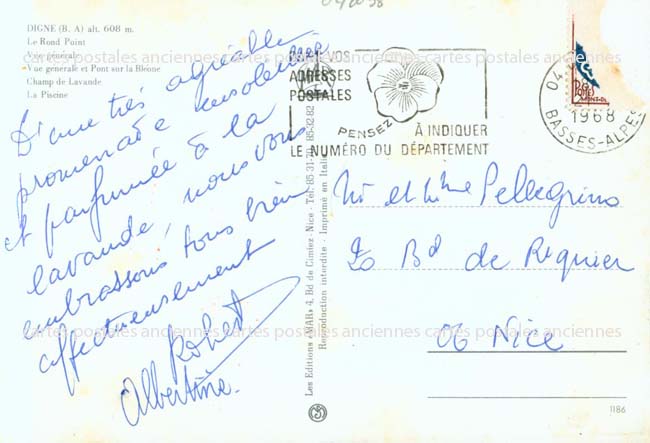 DIGNE (B. A) alt. 608 m.
Le Rond Point
Vue générale
Vue générale et Pont sur la Bléone
Champ de Lavande
La Piscine
D'une très agréable
promenade ensoleillée
et parfumée à la
lavande, nous vous
embrassons tous bien
affectueusement
Robert
Albertine.
Les Editions «MAR» 4, Bd de Cimiez - Nice - Tel. 85.31-70 - 85.32.82
Reproduction interdite - Imprimé en Italie
DANS VOS
ADRESSES
POSTALES
PENSEZ
À INDIQUER
LE NUMÉRO DU DÉPARTEMENT
04
1968
BASSES-ALPES
Mr et Mme Pellegrino
Bd de Riquier
06 Nice
1186
cartes postales anciennes cartes postales anciennes cartes postales anciennes